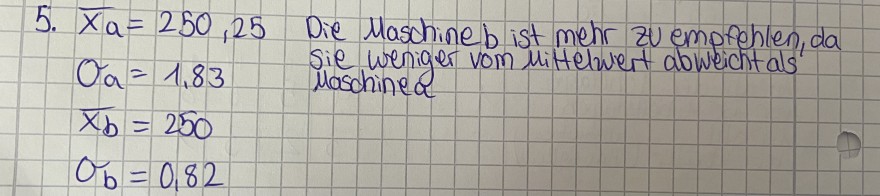 5. x̄a = 250,25 Die Maschine b ist mehr zu empfehlen, da
sie weniger vom Mittelwert abweicht als
σa = 1,83 Maschine a
x̄b = 250
σb = 0,82